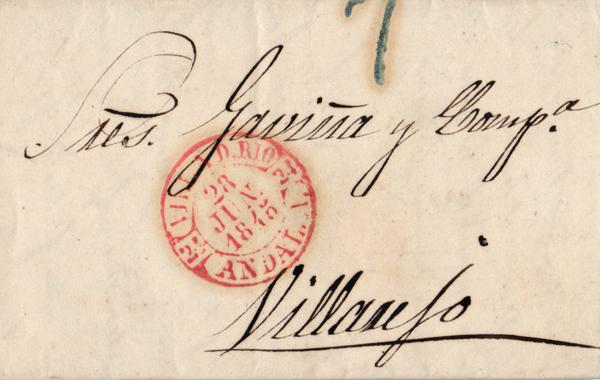 7
Sres. Gaviña y Comp.ª
D. RIO
28
JUN
1845
ANDAL.
Villarejo